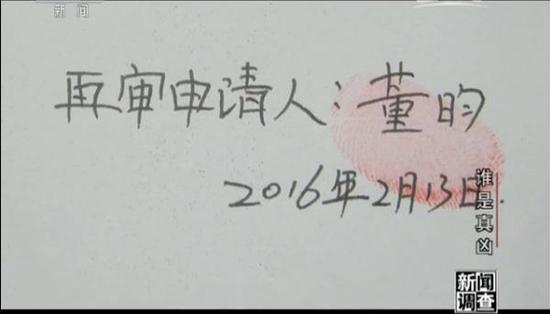 新闻
再审申请人:董昀
2016年2月13日.
谁是真凶
新闻
调查